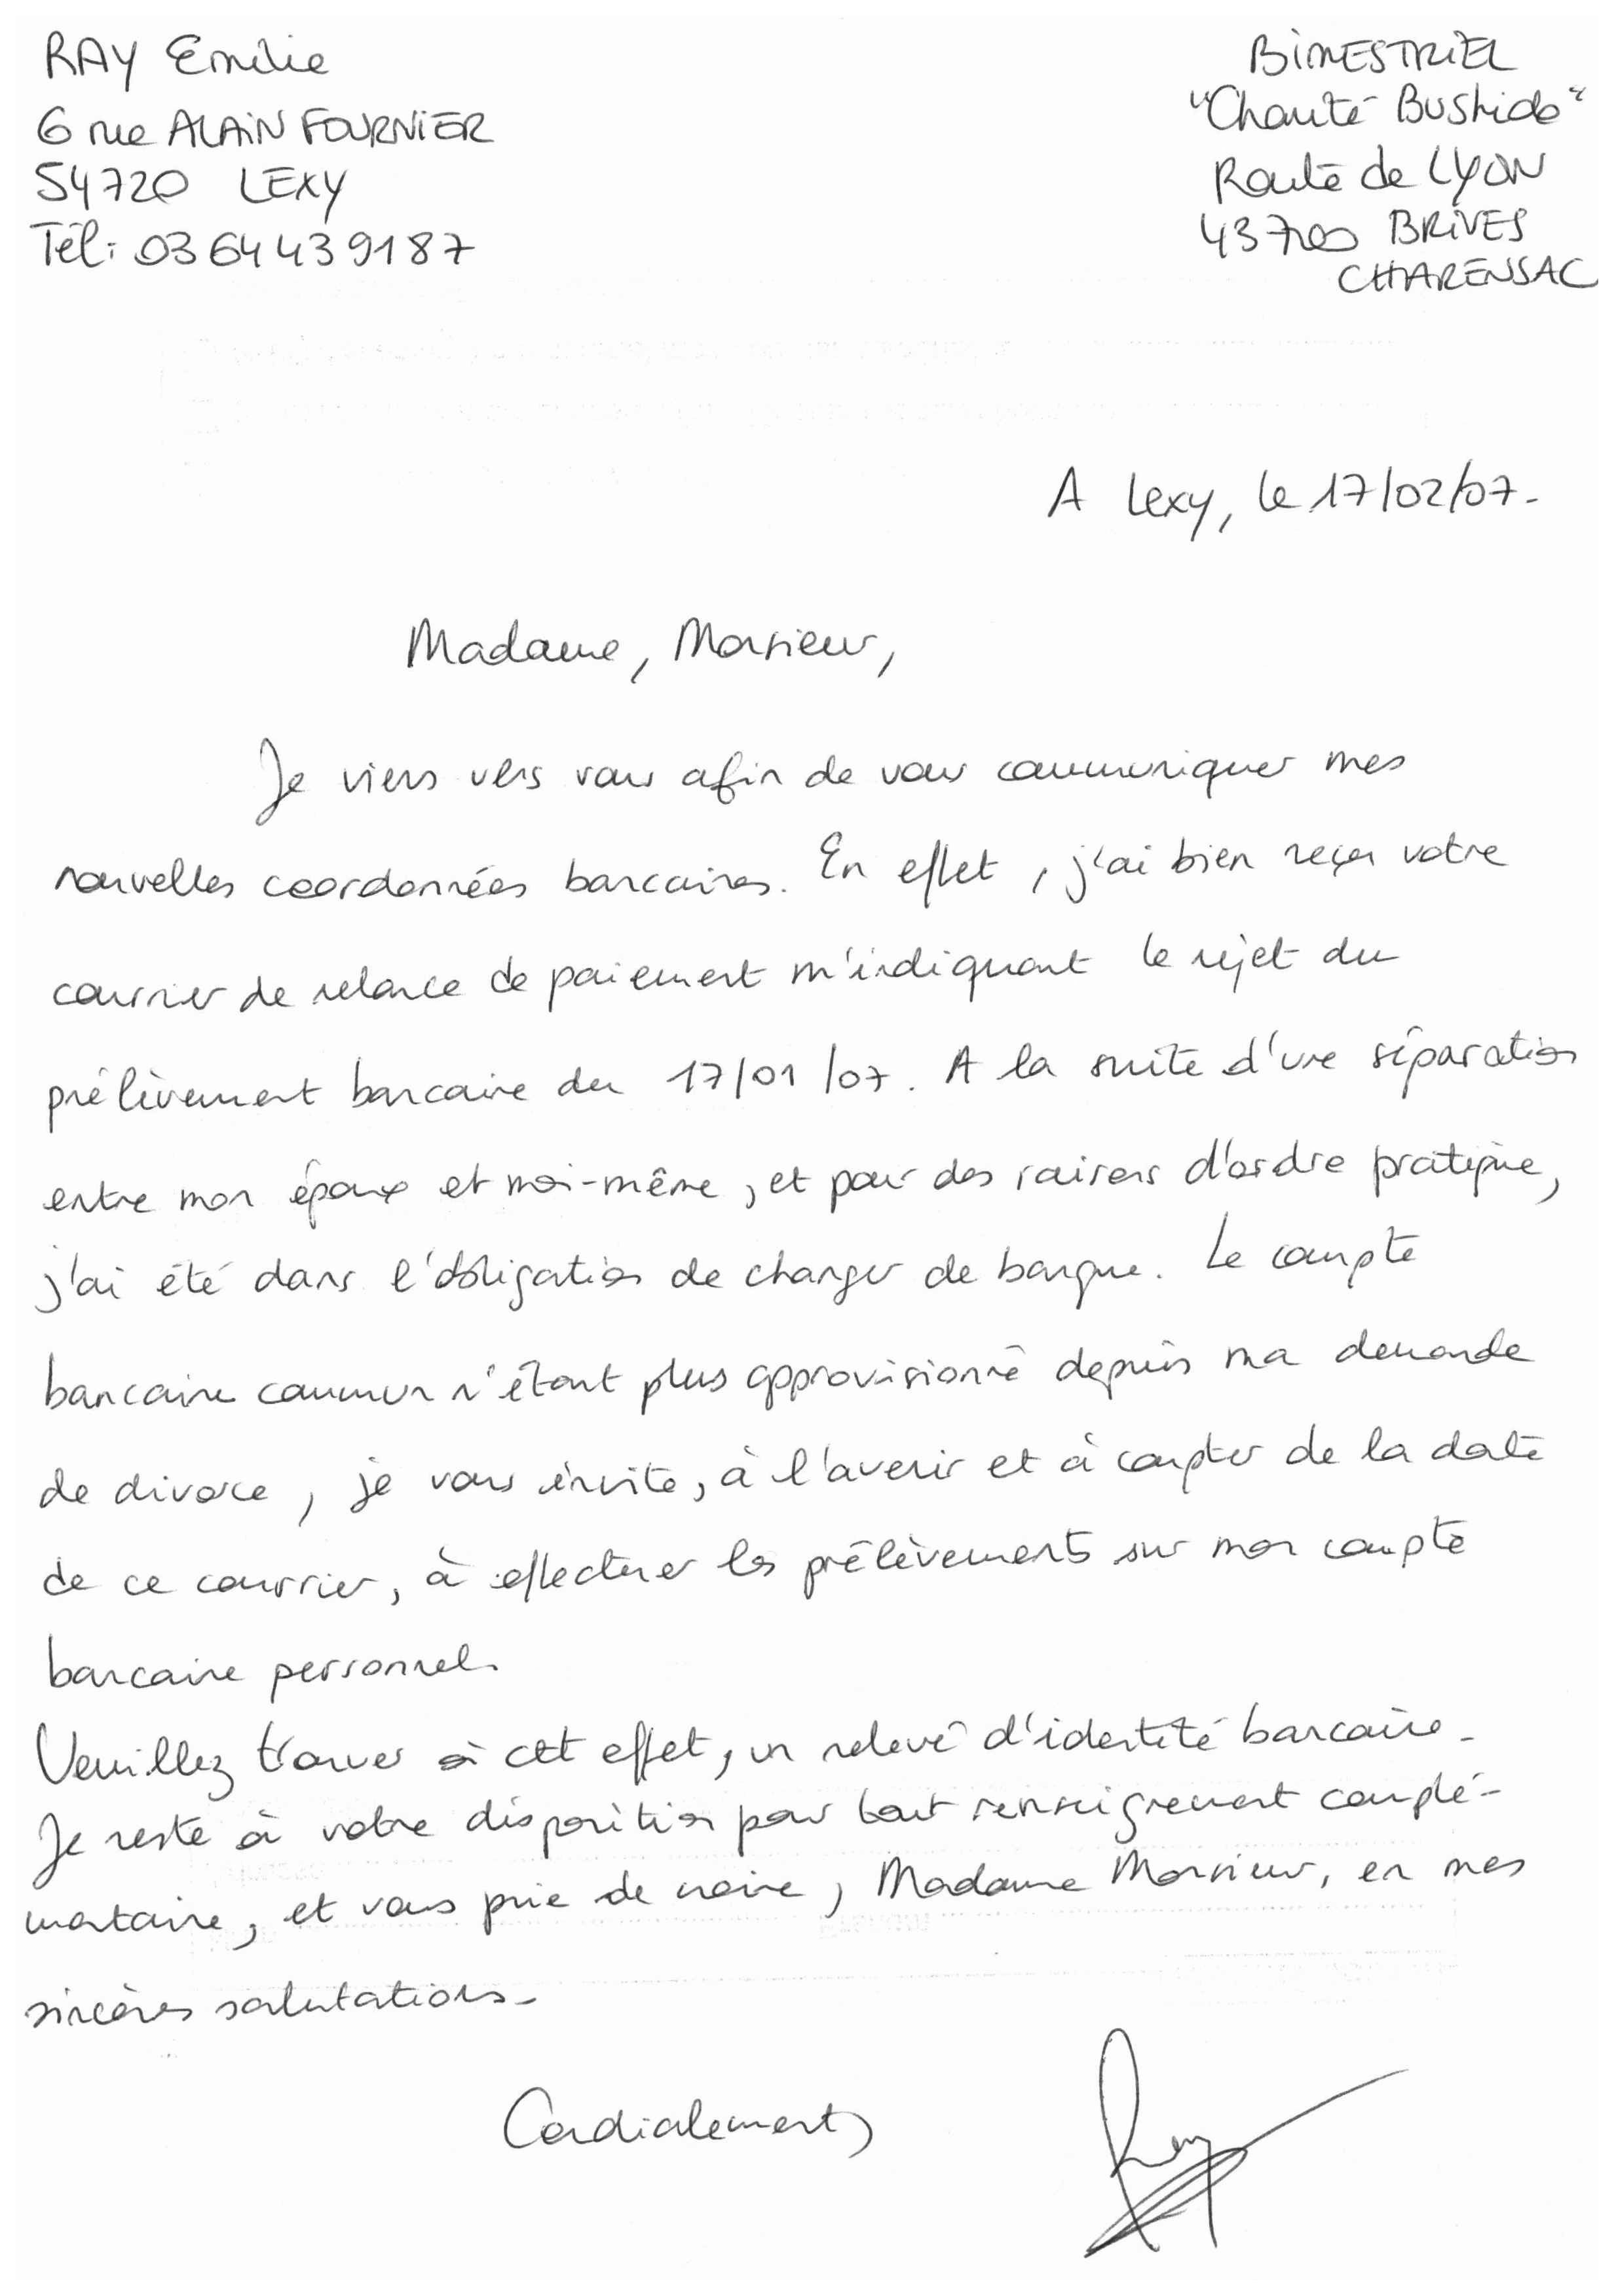 RAY Emilie
6 rue ALAIN FOURNIER
54720 LEXY
Tél: 03 64 43 91 87
BIMESTRIEL
"Chanté Bushido"
Route de LYON
43700 BRIVES
CHARENSAC
A Lexy, le 17/02/07.
Madame, Monsieur,
Je viens vers vous afin de vous communiquer mes
nouvelles coordonnées bancaires. En effet, j'ai bien reçu votre
courrier de relance de paiement m'indiquant le rejet du
prélèvement bancaire du 17/01/07. A la suite d'une séparation
entre mon époux et moi-même, et pour des raisons d'ordre pratique,
j'ai été dans l'obligation de changer de banque. Le compte
bancaire commun n'étant plus approvisionné depuis ma demande
de divorce, je vous invite, à l'avenir et à compter de la date
de ce courrier, à effectuer les prélèvements sur mon compte
bancaire personnel.
Veuillez trouver à cet effet, un relevé d'identité bancaire.
Je reste à votre disposition pour tout renseignement complé-
mentaire, et vous prie de croire, Madame Monsieur, en mes
sincères salutations.
Cordialement,
Ray